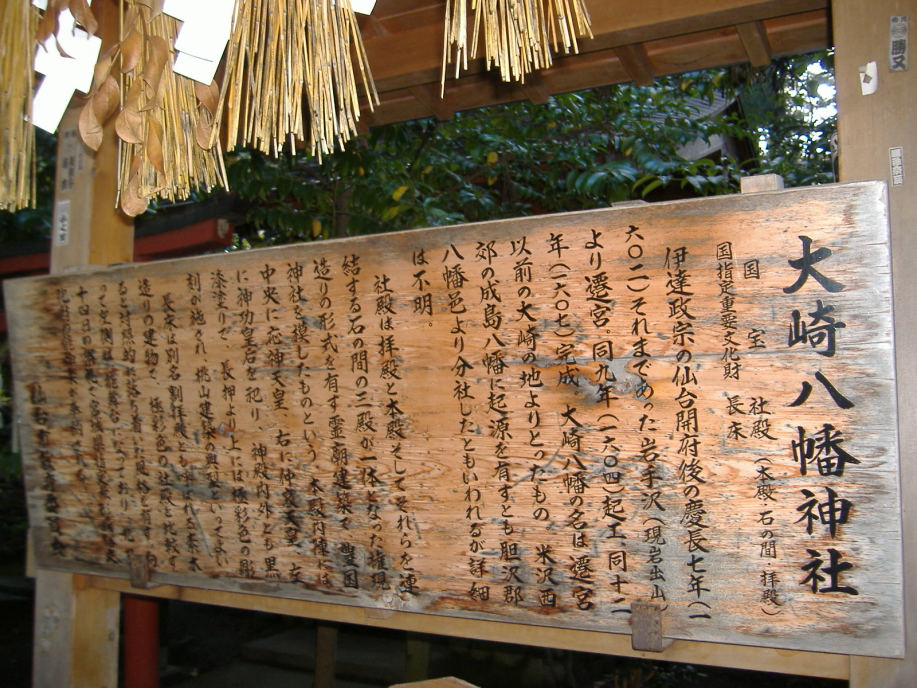 大崎八幡神社
国宝 社殿(本殿 石の間・拝殿)
国指定重要文化財 長床
伊達政宗の仙台開府後の慶長七年(一
六〇二)それまであった岩手沢(現岩出山)
より遷宮。同九年(一六〇四)起工 同十二
年(一六〇七)完成 大崎八幡の名は 遷宮
以前の大崎の地よりとったもの 米沢西
郊の成島八幡に起源を有すとも 胆沢郡
八幡邑より分社したともいわれるが詳細
は不明。
社殿は拝殿と本殿そしてそれらを連
結する石の間の三殿が一体となった権現
造りの形式を有す霊朝建築で 豊国
神社を模したものという 本殿内陣には
中央に応神天皇 右に仲哀天皇 左
に神功皇后を祀り 神殿内外とも黒
漆塗り 長押より上には極彩色の彫
刻が施され 桃山建築の
長床は別名割拝殿
造りの建物で
勝又